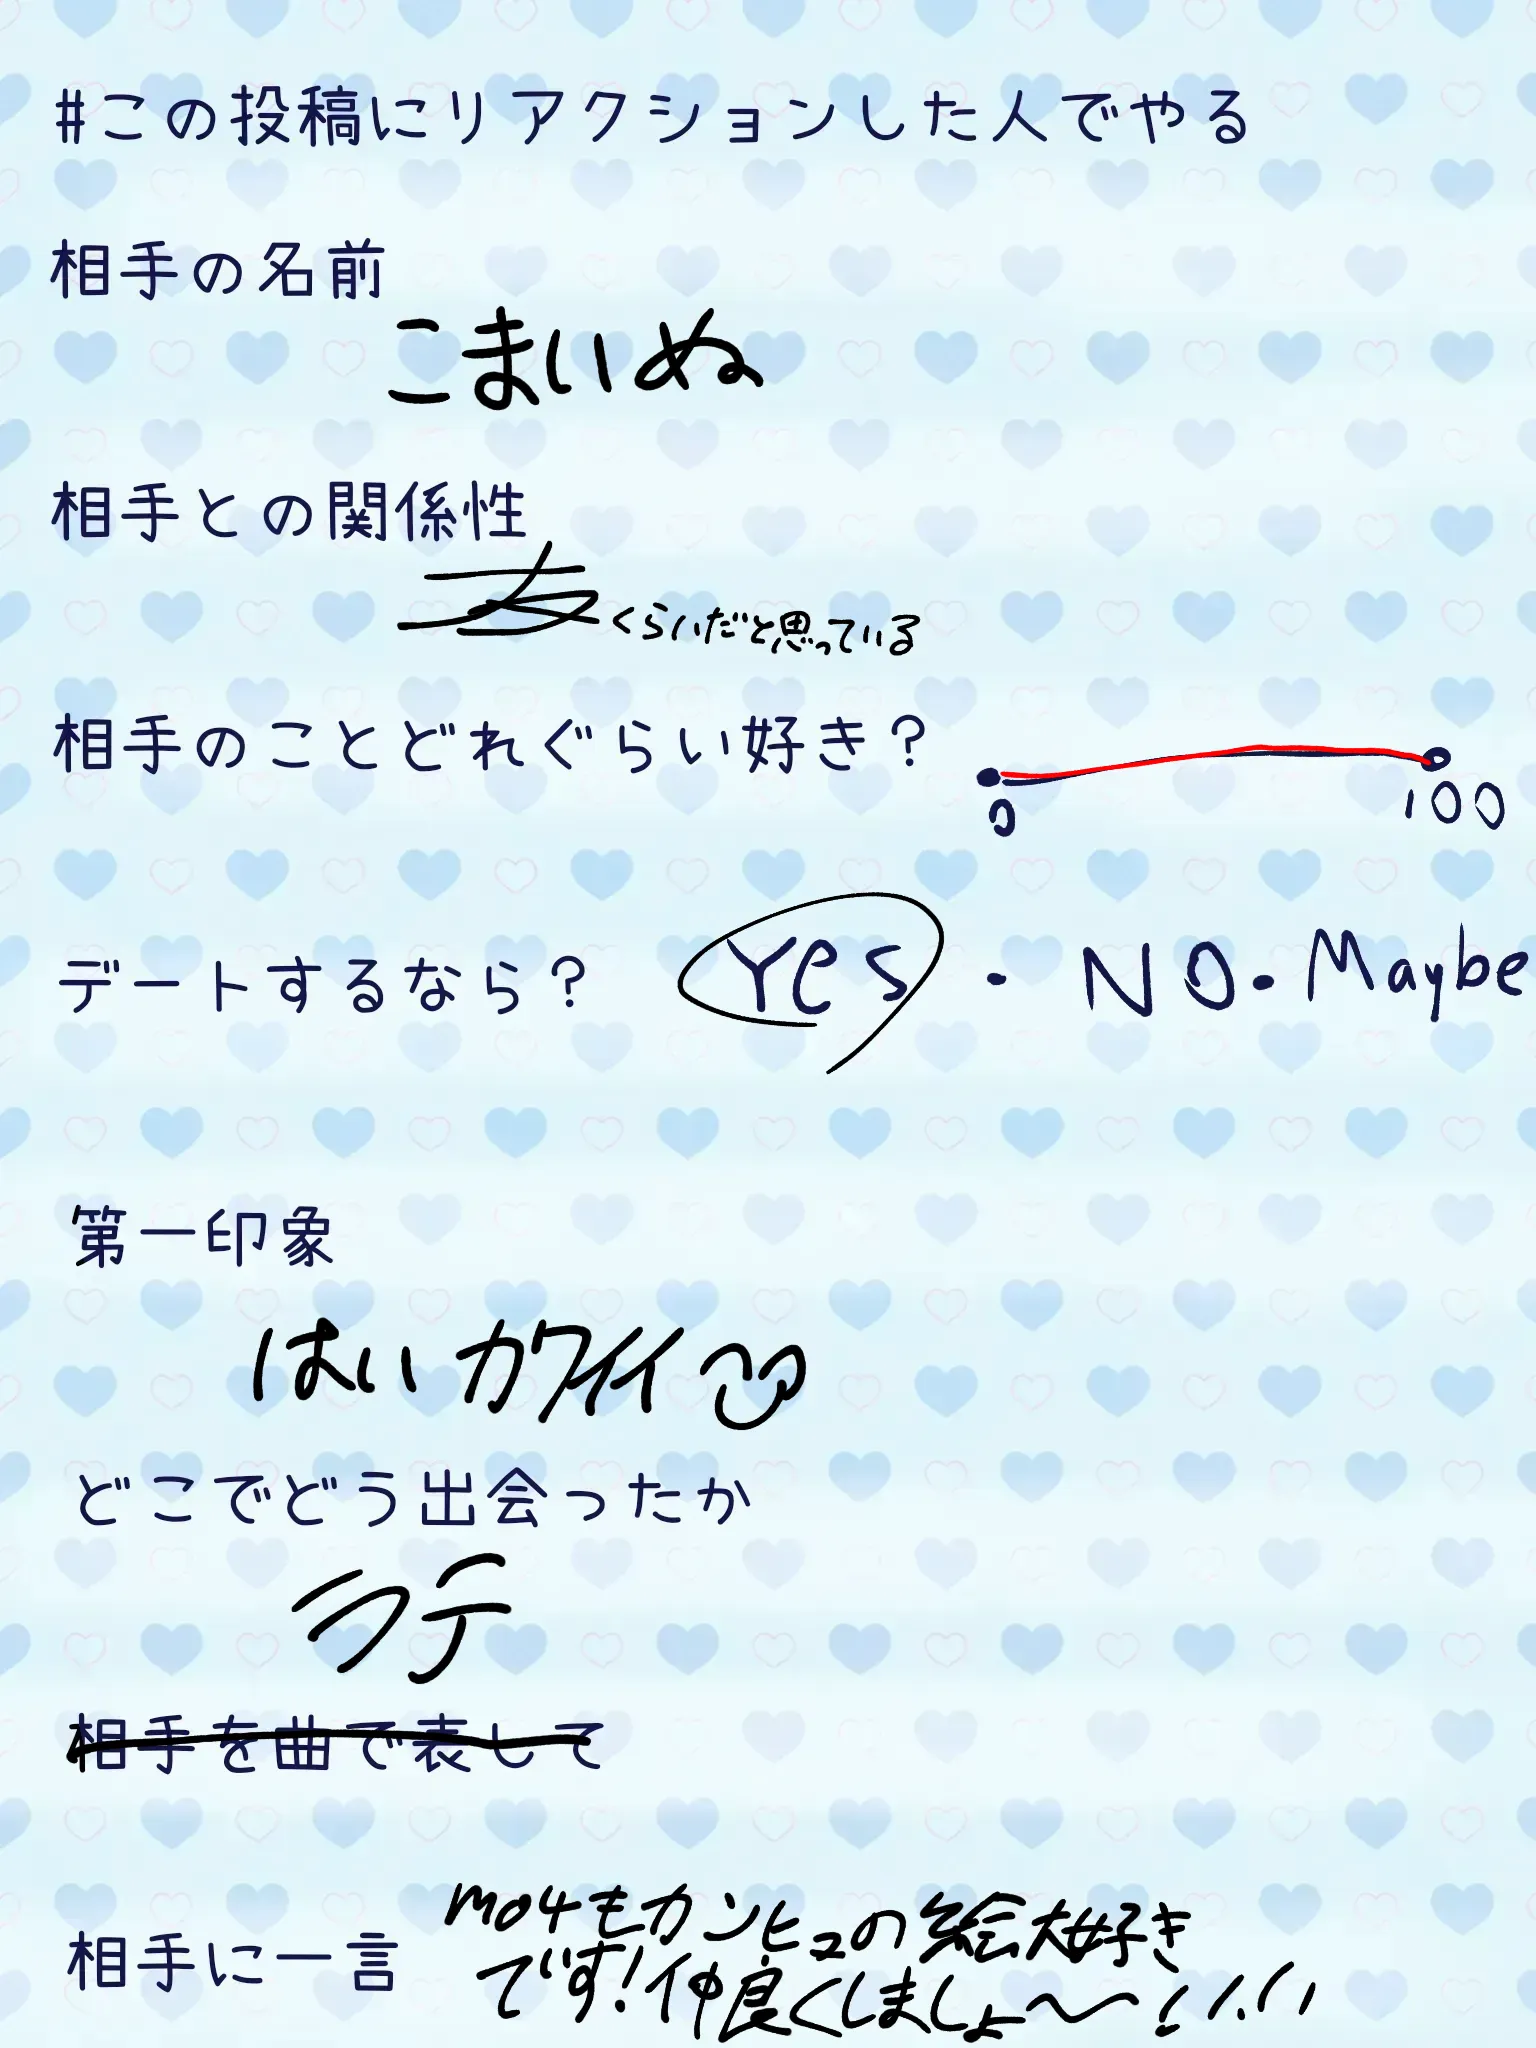 #この投稿にリアクションした人でやる
相手の名前
こまいぬ
相手との関係性
友くらいだと思っている
相手のことどれぐらい好き?
0 100
デートするなら? Yes・NO・Maybe
第一印象
はいカワイイ
どこでどう出会ったか
ラテ
相手を曲で表して
相手に一言
mo4もカンヒュの絵大好き
です!仲良くしましょ〜!!!!